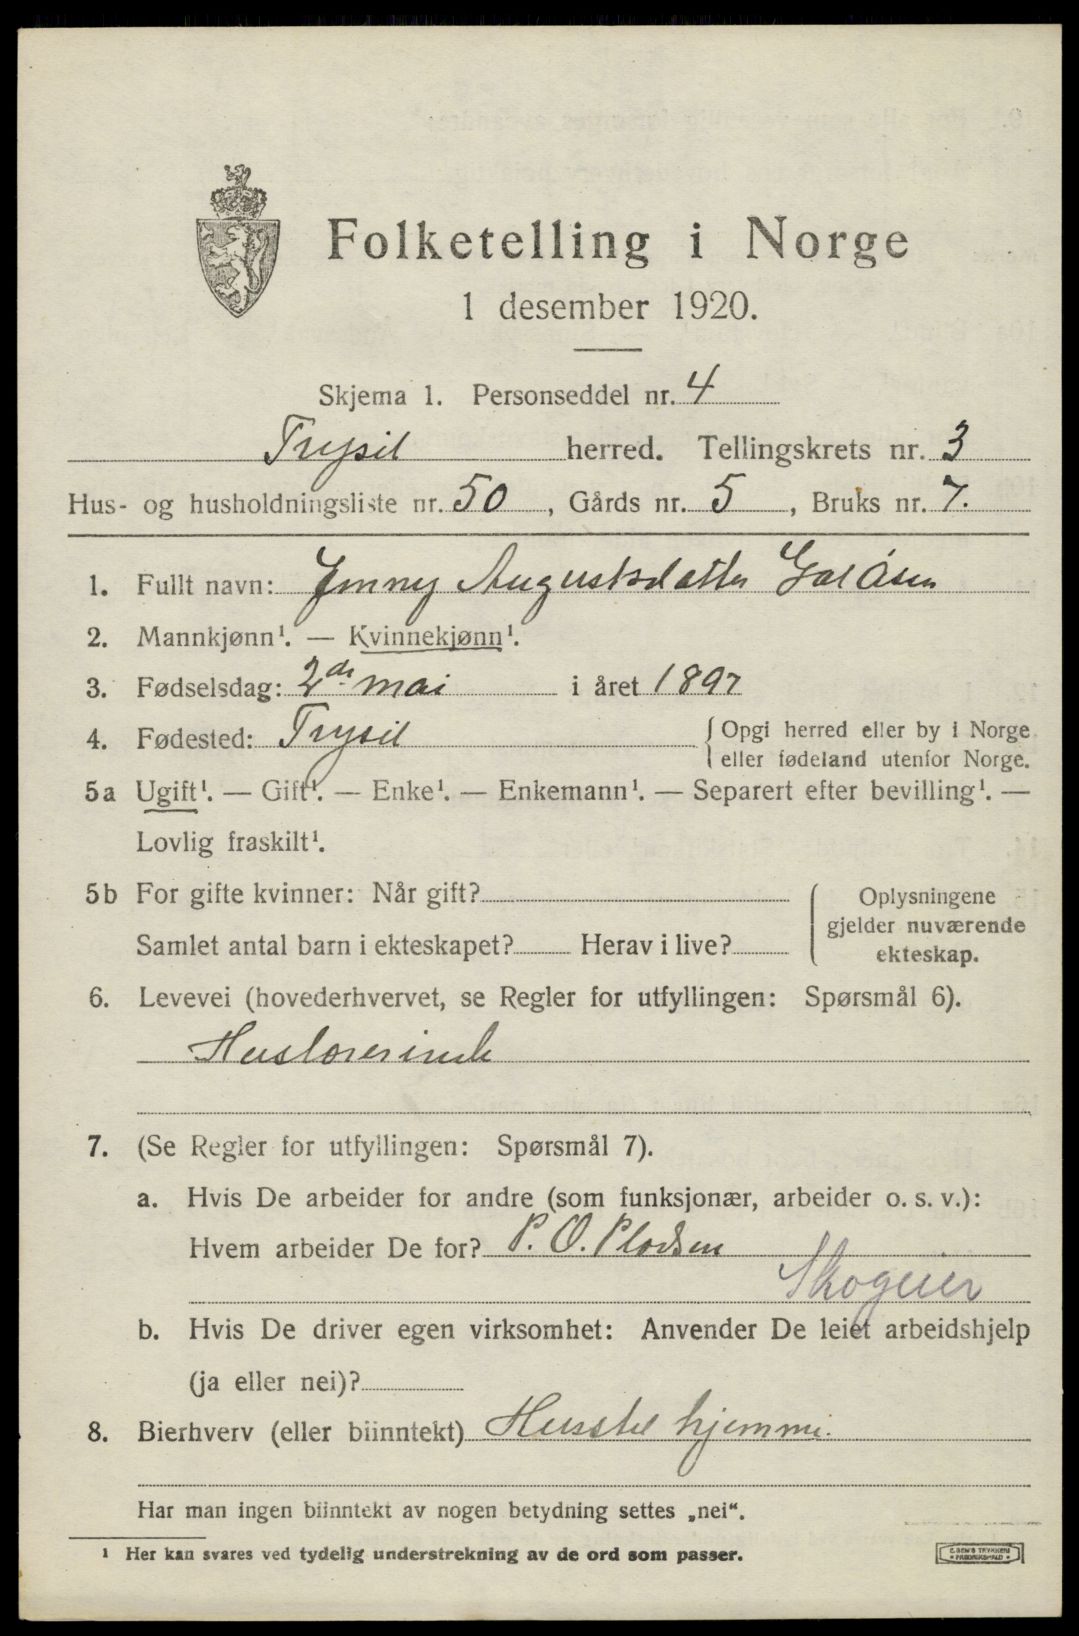 Folketelling i Norge
1 desember 1920.
Skjema 1. Personseddel nr. 4
Trysil herred. Tellingskrets nr. 3
Hus- og husholdningsliste nr. 50, Gårds nr. 5, Bruks nr. 7.
1. Fullt navn: Jenny Augustsdatter Galåsen
2. Mannkjønn¹. — Kvinnekjønn¹.
3. Fødselsdag: 2de mai i året 1897
4. Fødested: Trysil {Opgi herred eller by i Norge
eller fødeland utenfor Norge.
5a Ugift¹. — Gift¹. — Enke¹. — Enkemann¹. — Separert efter bevilling¹. —
Lovlig fraskilt¹.
5b For gifte kvinner: Når gift?
Samlet antal barn i ekteskapet? Herav i live?
Oplysningene
gjelder nuværende
ekteskap.
6. Levevei (hovederhvervet, se Regler for utfyllingen: Spørsmål 6).
7. (Se Regler for utfyllingen: Spørsmål 7).
a. Hvis De arbeider for andre (som funksjonær, arbeider o. s. v.):
Hvem arbeider De for? P. O.
Skogeier
b. Hvis De driver egen virksomhet: Anvender De leiet arbeidshjelp
(ja eller nei)?
8. Bierhverv (eller biinntekt) Husstel hjemme.
Har man ingen biinntekt av nogen betydning settes „nei“.
¹ Her kan svares ved tydelig understrekning av de ord som passer.